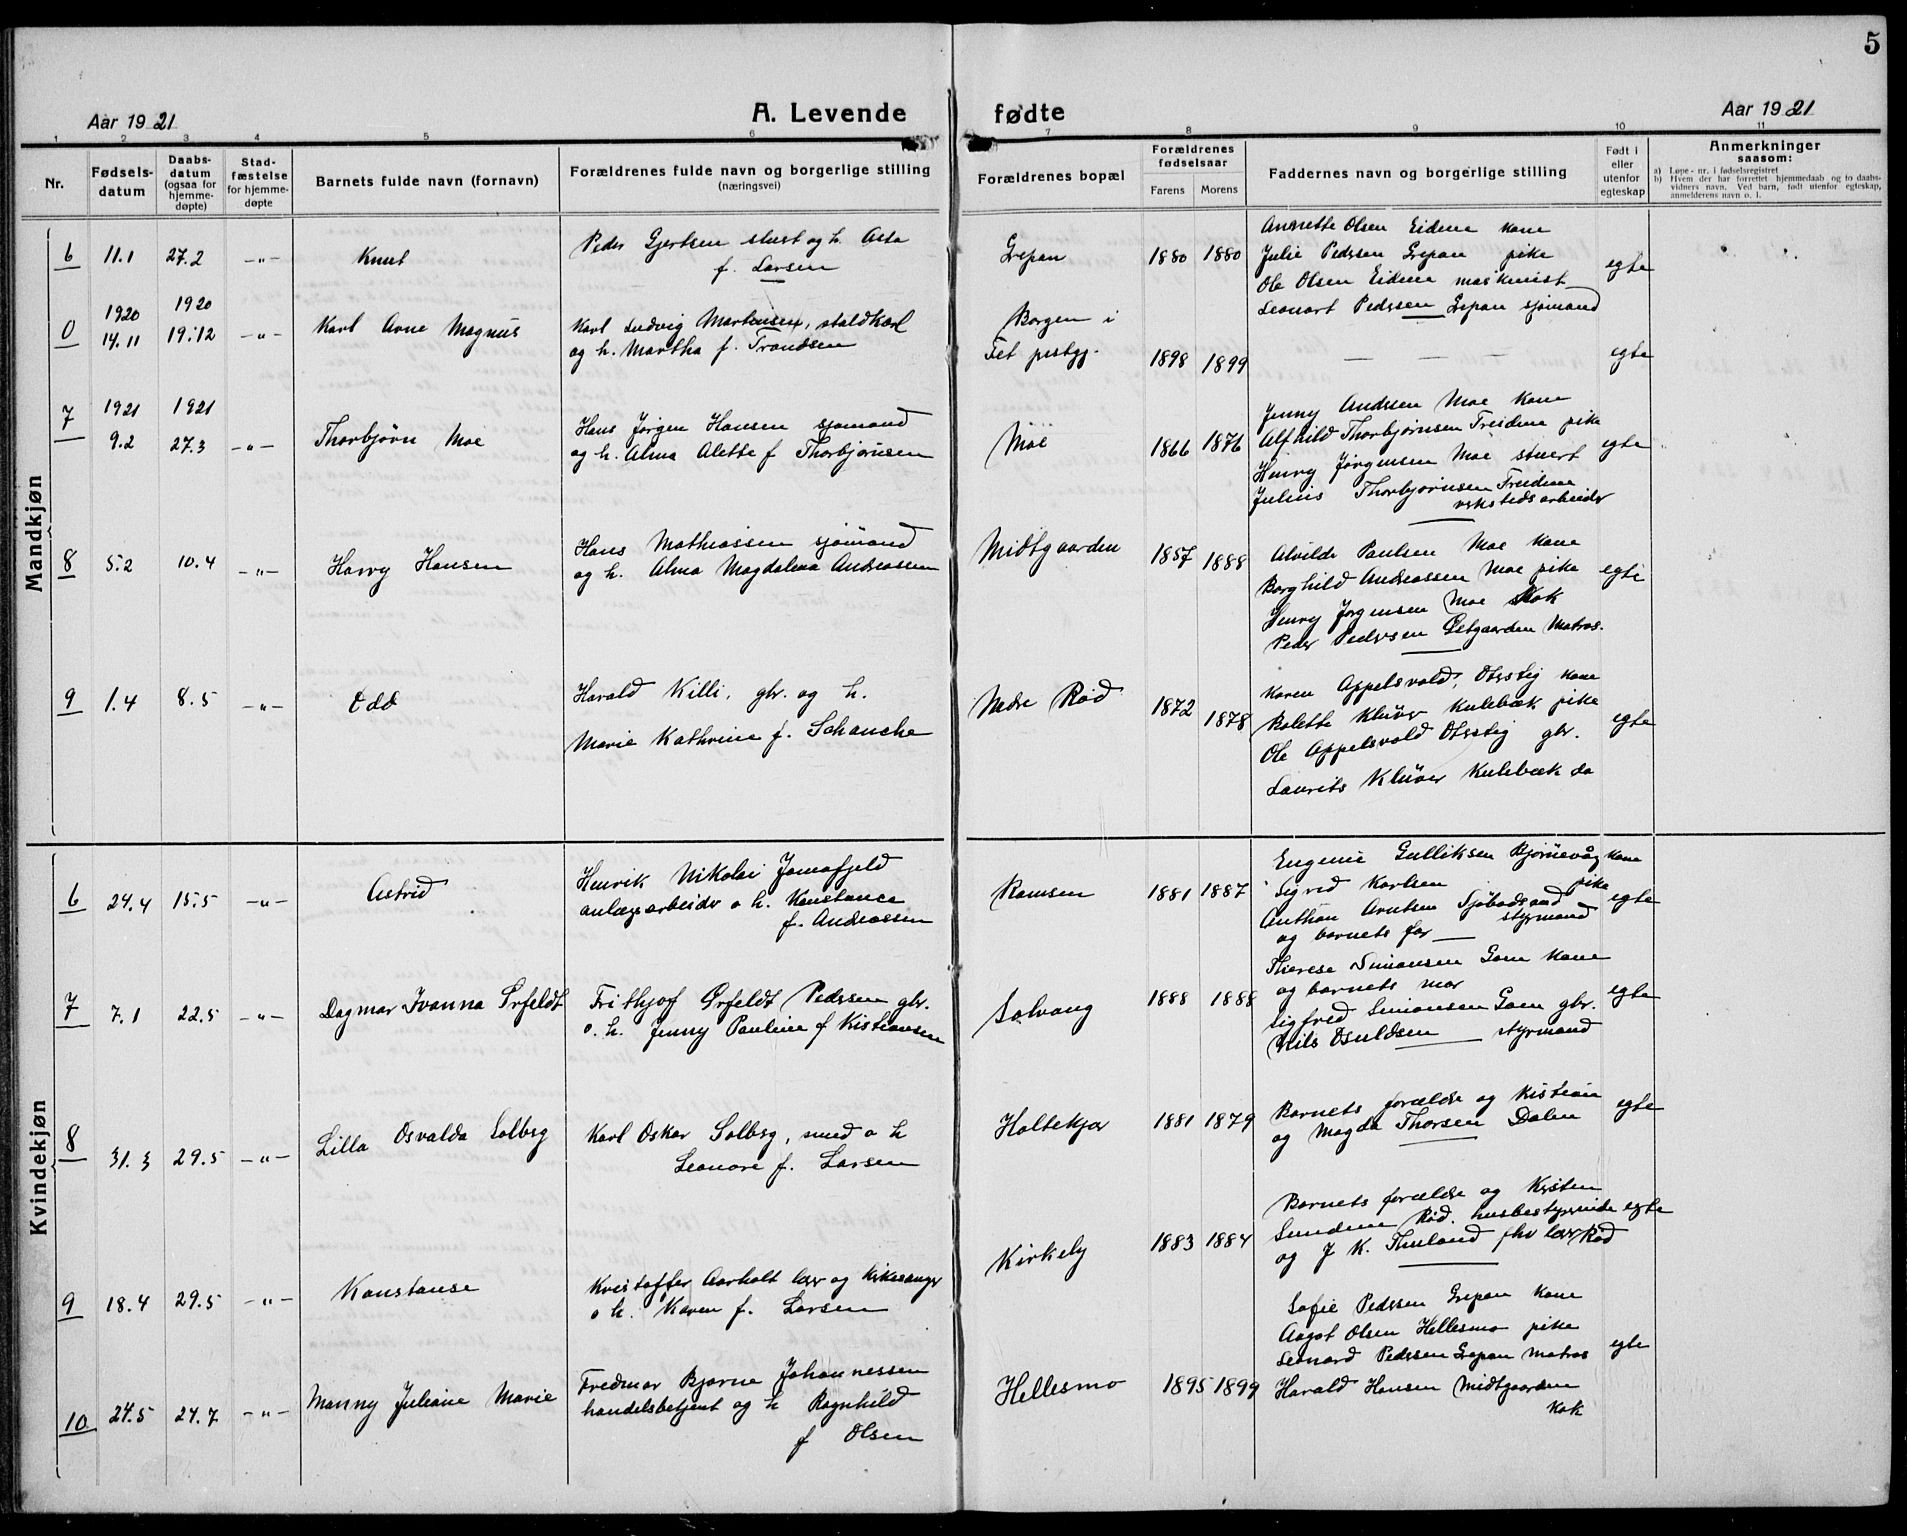 5
Aar 1921 A. Levende fødte Aar 1921
1 2 3 4 5 6 7 8 9 10 11
Nr. Fødsels-datum Daabs-datum (ogsaa for hjemme-døpte) Stad-fæstelse for hjemme-døpte Barnets fulde navn (fornavn) Forældrenes fulde navn og borgerlige stilling (næringsvei) Forældrenes bopæl Forældrenes fødselsaar Farens Morens Faddernes navn og borgerlige stilling Født i eller utenfor egteskap Anmerkninger saasom:
a) Løpe-nr. i fødselsregistret
b) Hvem der har forrettet hjemmedaab og to daabs-vidners navn. Ved barn, født utenfor egteskap, anmelderens navn o. l.
Mandkjøn
6 11.1 27.2 -„- Knut
Peder Gjertsen stuert og h. Asta
f. Larsen
Grepan 1880 1880
Annette Olsen Eidene kone
Julie Pedersen Grepan pike
Ole Olsen Eidene maskinist
Leonart Pedersen Grepan sjømand
egte
0 1920 14.11 1920 19.12 -„- Karl Arne Magnus
Karl Ludvig Martensen, staldkarl
og h. Martha f. Trondsen
Borgen i
Fet prestgj. 1898 1899 — — — egte
7 1921 9.2 1921 27.3 -„- Thorbjørn Moe
Hans Jørgen Hansen sjømand
og h. Alma Alette f Thorbjørnsen
Moe 1866 1876
Jenny Andersen Moe kone
Alfhild Thorbjørnsen Treidene pike
Henry Jørgensen Moe stuert
Julius Thorbjørnsen Treidene
verkstedsarbeider
egte
8 5.2 10.4 -„- Harry Hansen
Hans Mathiassen sjømand
og h. Alma Magdalena Andreassen
Midtgaarden 1857 1888
Alvilde Paulsen Moe kone
Borghild Andreassen Moe pike
Henry Jørgensen Moe Kok
Peder Pedersen Østgaarden Matros.
egte
9 1.4 8.5 -„- Odd
Harald Killi, gbr. og h.
Marie Kathrine f. Schanche
Nedre Rød 1872 1878
Karen Appelsvold, Oterstig kone
Bolette Klüver Kulebæk pike
Ole Appelsvold Oterstig gbr.
Laurits Klüver Kulebæk do
egte
Kvindekjøn
6 24.4 15.5 -„- Astrid
Henrik Nikolai Jamafjeld
anlægsarbeider o h. Konstance
f. Andreassen
Ramsen 1881 1887
Eugenie Gulliksen Bjørnevåg kone
Sigrid Karlsen pike
Anthon Arntsen Sjøbodsand
styrmand
og barnets far
egte
7 7.1 22.5 -„- Dagmar Ivanna Ørfeldt
Frithjof Ørfeldt Pedersen gbr.
o. h. Jenny Pauline f Kristiansen
Solvang 1888 1888
Therese Simonsen Gaen kone
og barnets mor
Sigfred Simonsen Gaen gbr.
Nils Osuldsen styrmand
egte
8 31.3 29.5 -„- Lilla Osvalda Solberg
Karl Oskar Solberg, smed o h
Leonore f. Larsen
Holtekjær 1881 1879
Barnets forældre og Kristian
og Magda Thorsen Dalen
egte
9 18.4 29.5 -„- Konstanse
Kristoffer Aarholt lær og kirkesanger
o h. Karen f. Larsen
Kirkely 1883 1884
Barnets forældre og Kirsten
Sundene Rød, husbestyrerinde
og J K. Thuland fhv lær Rød
egte
10 24.5 24.7 -„- Manny Juliane Marie
Fredmar Bjarne Johannessen
handelsbetjent og h Ragnhild
f Olsen
Hellesmo 1895 1899
Sofie Pedersen Grepan kone
Aagot Olsen Hellesmo pike
Leonard Pedersen Grepan Matros
Harald Hansen Midtgaarden
kok
egte